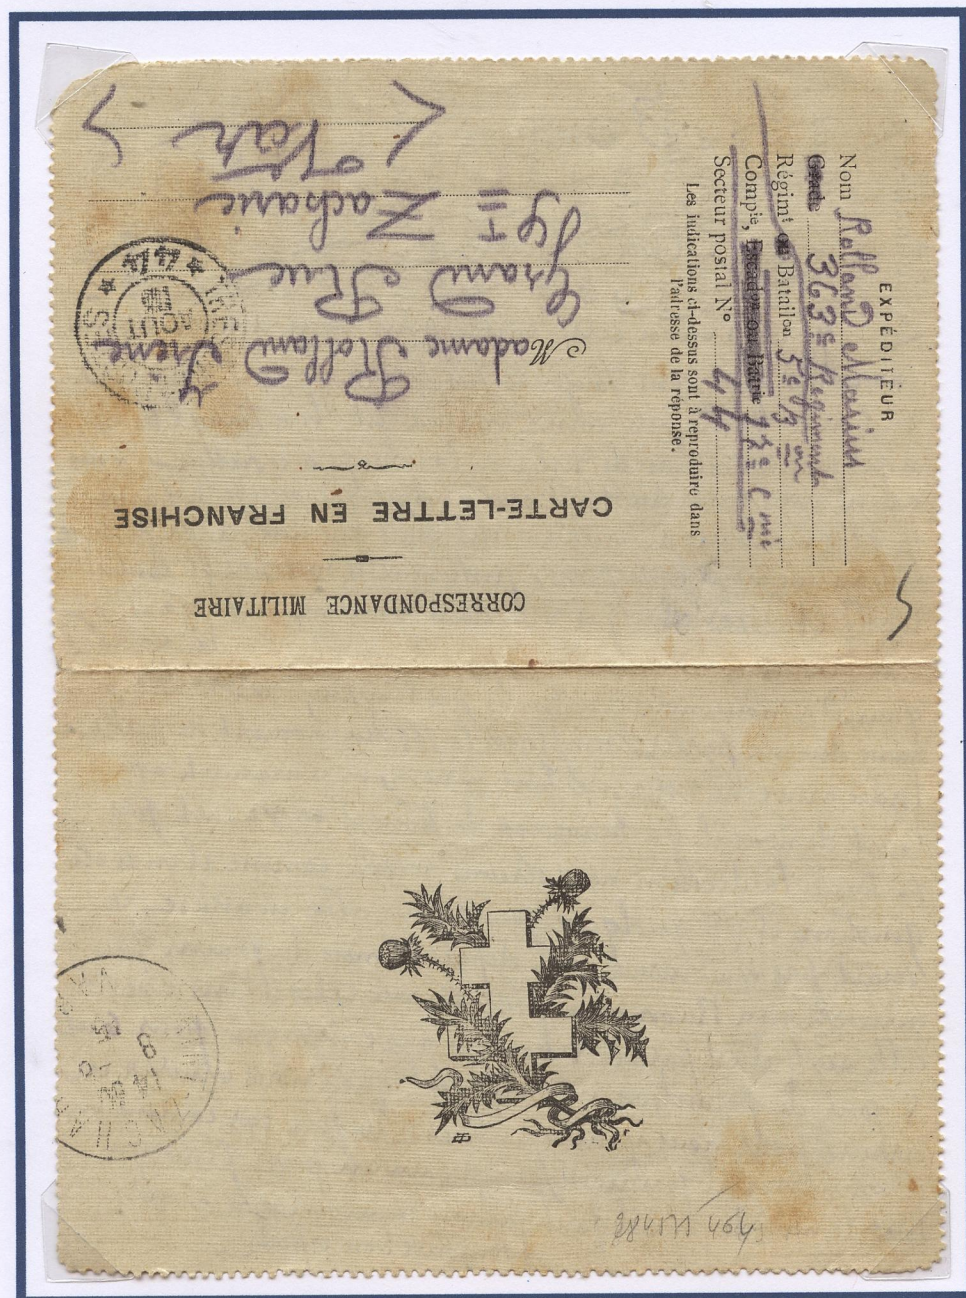 CORRESPONDANCE MILITAIRE
CARTE-LETTRE EN FRANCHISE
Madame Rolland Irene
Grand Rue
St Zacharie
Var
EXPÉDITEUR
Nom Rolland Marius
Grade 363e Regiment
Régimt ou Bataillon 5e Bon
Compie, Escadron ou Batrie 17e Cnie
Secteur postal No 44
Les indications ci-dessus sont à reproduire dans
l'adresse de la réponse.
TRESOR ET POSTES
* 17 *
AOUT
VAR